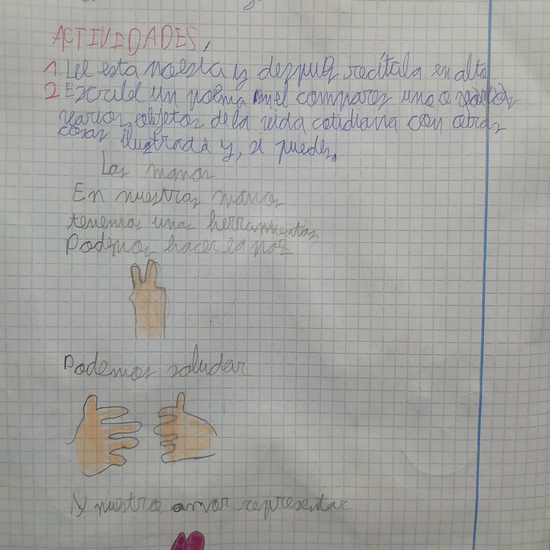 ACTIVIDADES,
1. Lee esta poesía y después recítala en alto
2 Escribe un poema en el compares uno o
varios objetos de la vida cotidiana con otras
cosas ilustrada y, si puedes,
Las manos
En nuestras manos
tenemos unas herramientas.
Podemos hacer la paz
Podemos saludar
Y nuestro amor representar